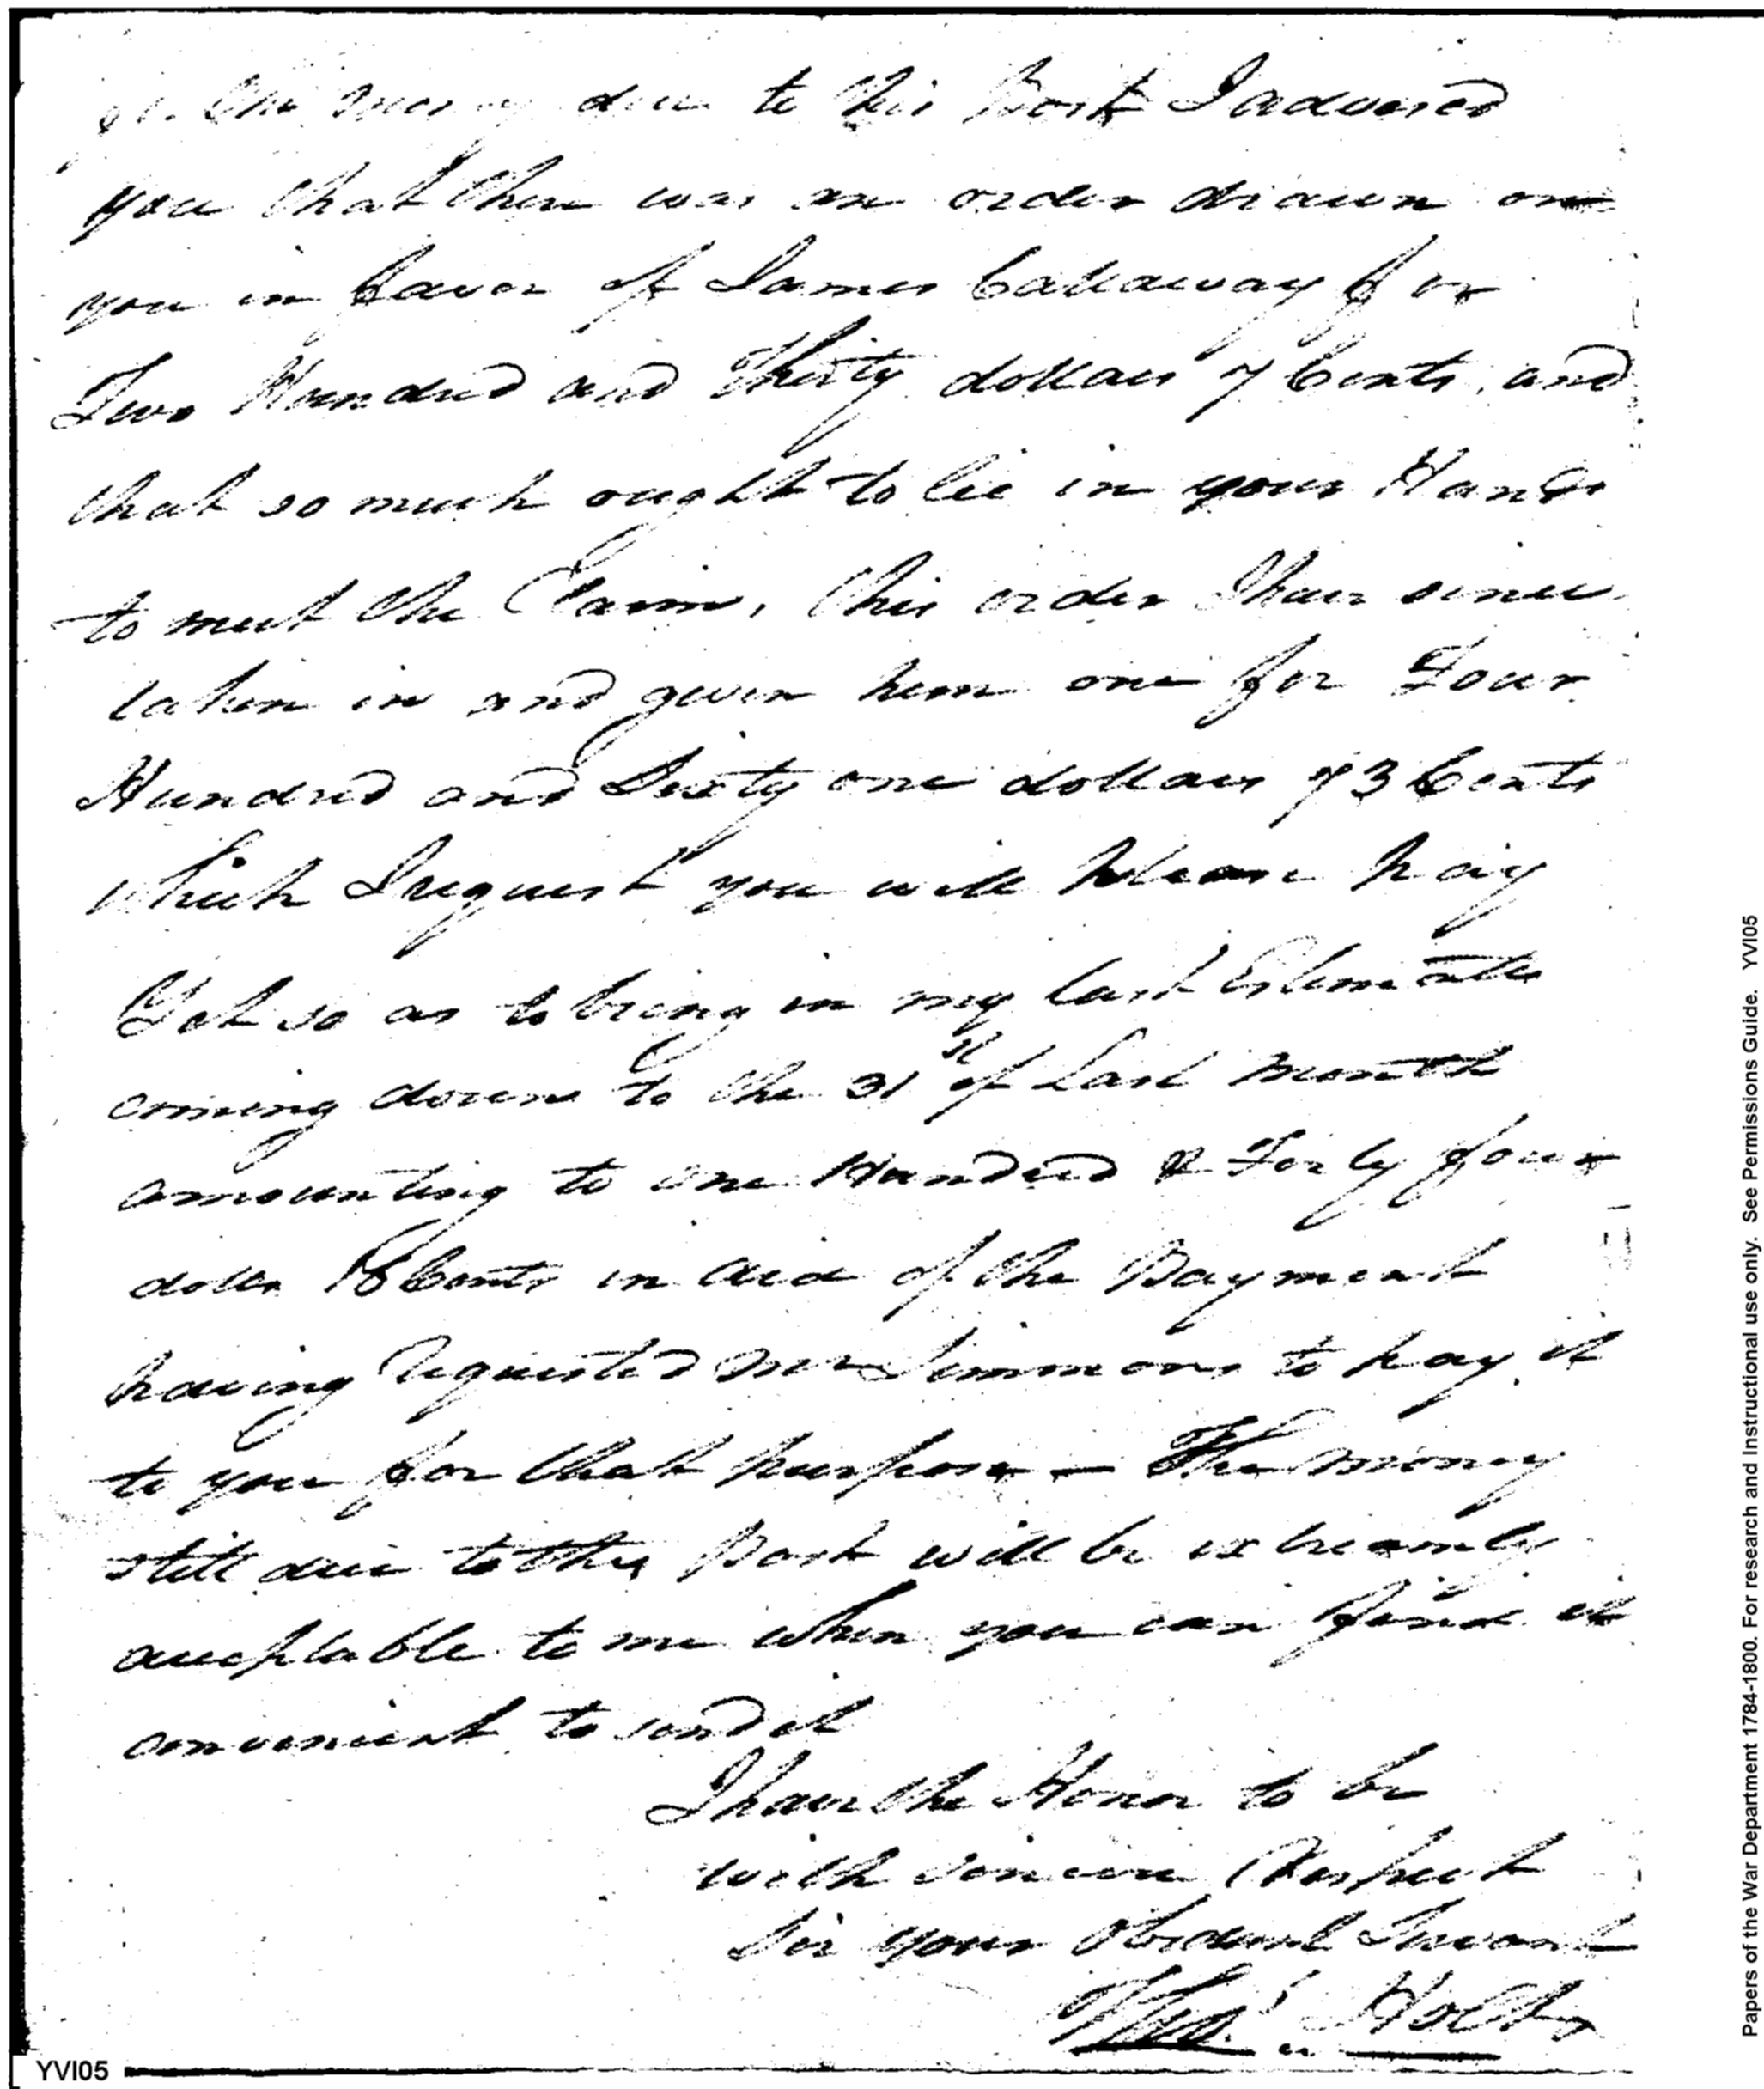 the money due to this Post I advised
you that there was an order drawn on
you in favor of James Callaway for
Two Hundred and Thirty dollars 7 Cents, and
that so much ought to lie in your Hands
to meet the Claim, this order I have since
taken in and given him one for Four
Hundred and Sixty one dollars 73 Cents
which I request you will please pay
Yet so as to bring in my last Estimate
coming down to the 31st of Last month
amounting to one Hundred & Forty four
dolls 18 Cents in aid of the Payment
having requested Mr Simmons to pay it
to you for that purpose — The money
still due to this Post will be extreamly
acceptable to me when you can find it
convenient to send it
I have the Honor to be
with sincere Respect
Sir your Obedient Servant
Thos. Holt
YVI05
Papers of the War Department 1784-1800. For research and Instructional use only. See Permissions Guide. YVI05